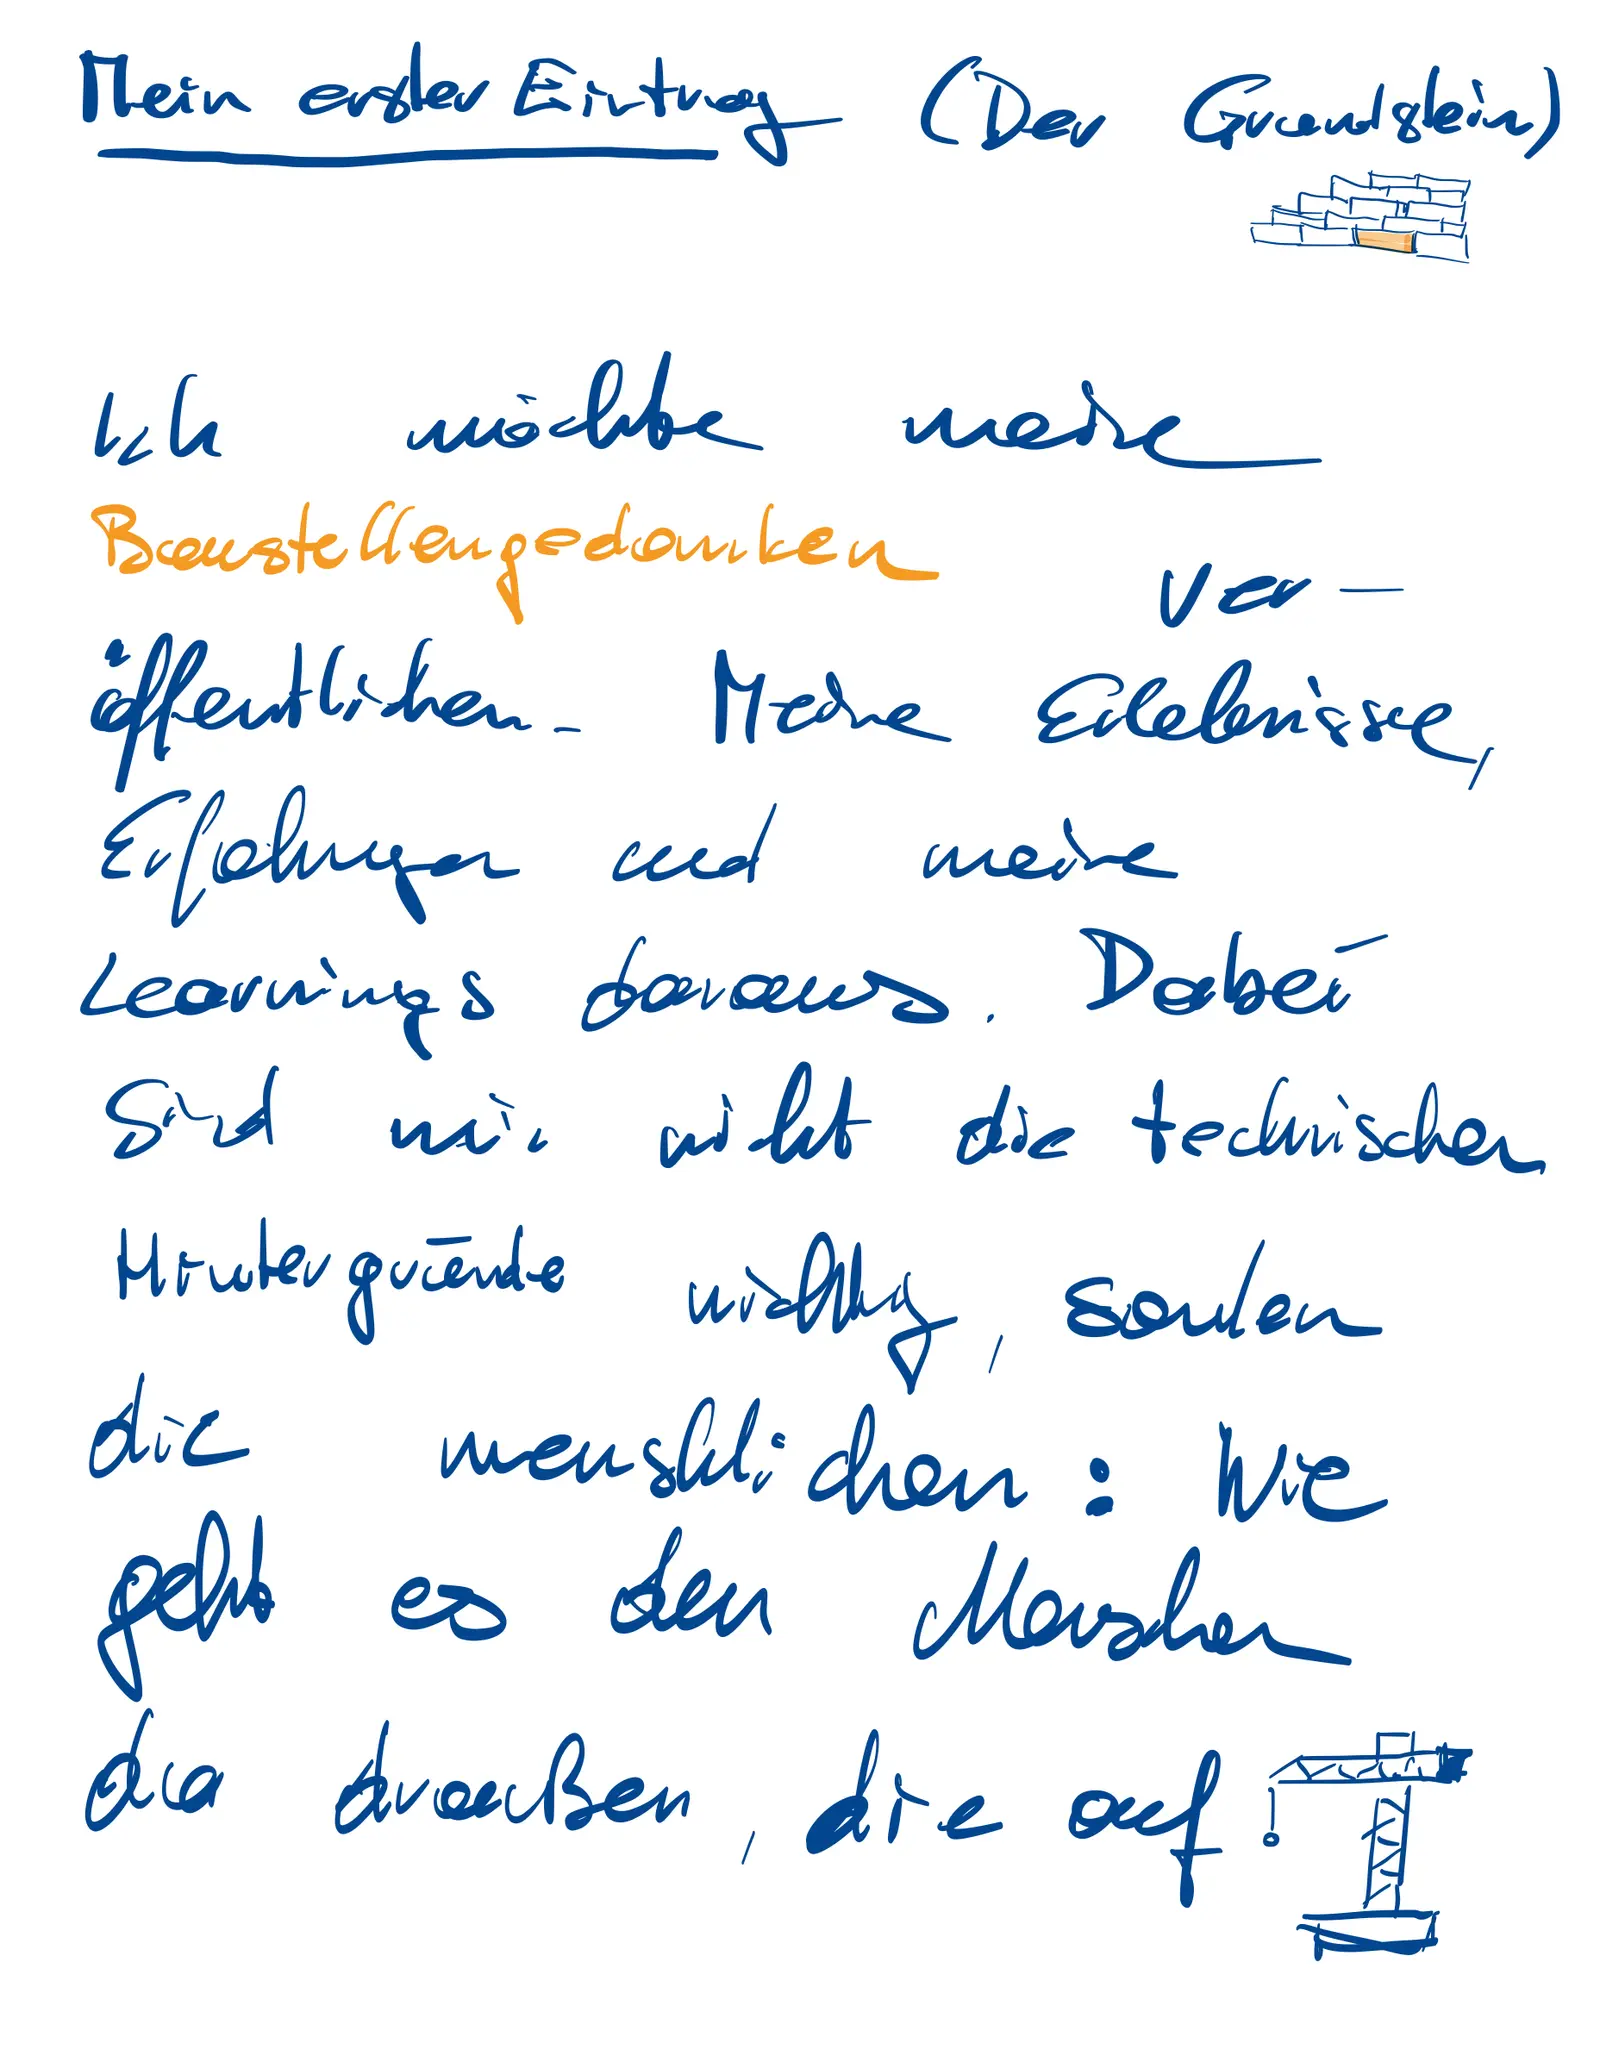 Mein erster Eintrag (Der Grundstein)
Ich möchte meine
Baustellengedanken
ver-
öffentlichen. Meine Erlebnisse,
Erfahrungen und meine
Learnings daraus. Dabei
sind mir nicht die technischen
Hintergründe wichtig, sondern
die menschlichen: Wie
geht es den Menschen
da draußen, die auf